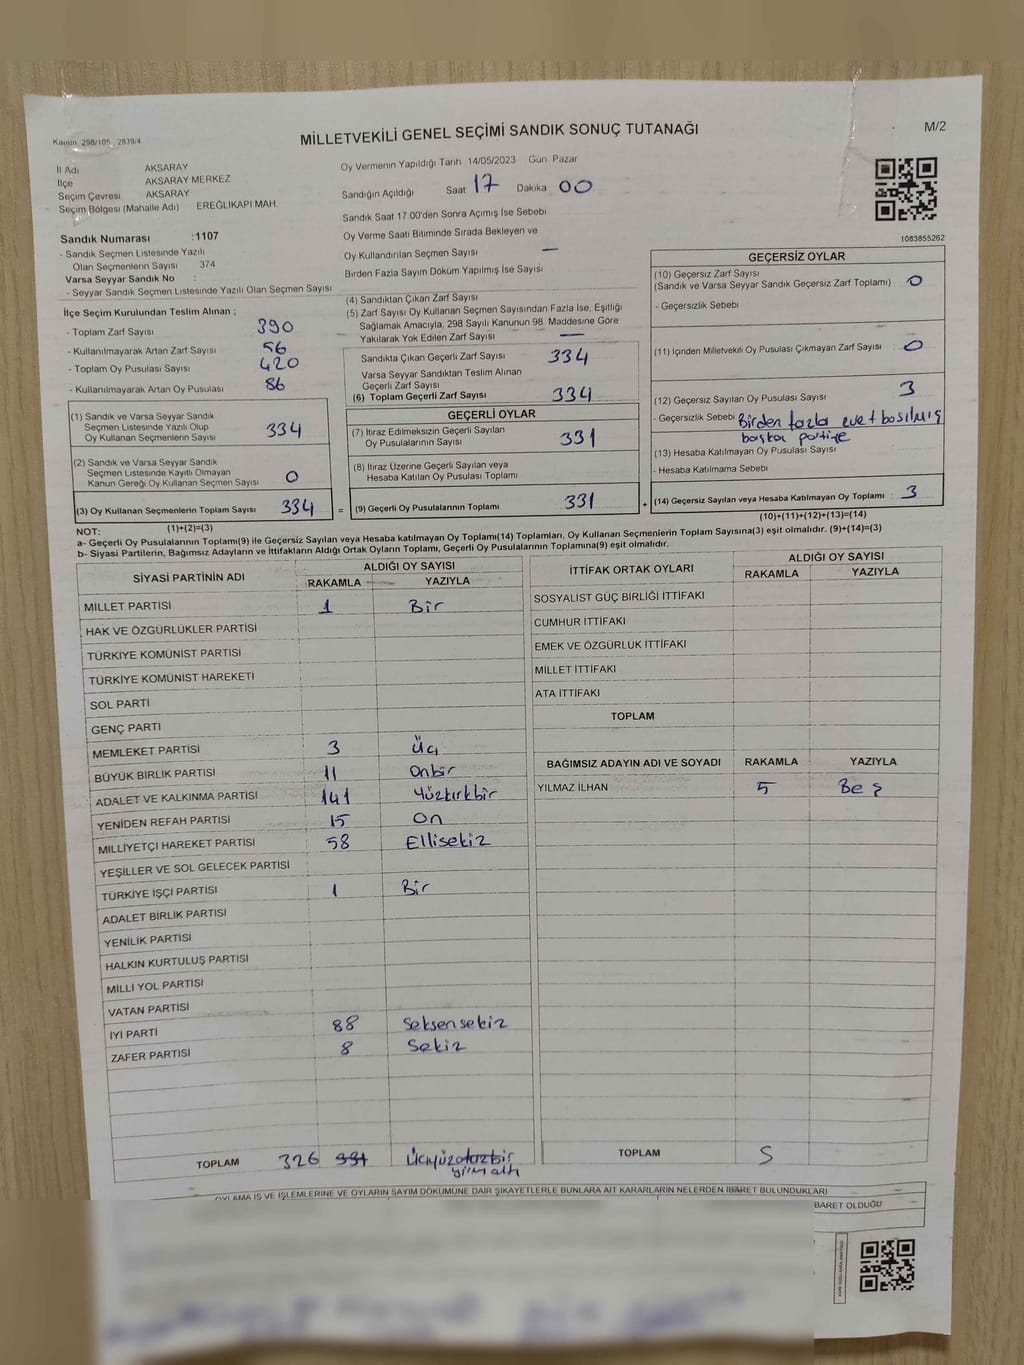 Kanun 298/105, 2839/4
MİLLETVEKİLİ GENEL SEÇİMİ SANDIK SONUÇ TUTANAĞI
M/2
İl Adı AKSARAY
İlçe AKSARAY MERKEZ
Seçim Çevresi AKSARAY
Seçim Bölgesi (Mahalle Adı) EREĞLİKAPI MAH.
Sandık Numarası :1107
- Sandık Seçmen Listesinde Yazılı
Olan Seçmenlerin Sayısı 374
Varsa Seyyar Sandık No :
- Seyyar Sandık Seçmen Listesinde Yazılı Olan Seçmen Sayısı
Oy Vermenin Yapıldığı Tarih 14/05/2023 Gün Pazar
Sandığın Açıldığı Saat 17 Dakika 00
Sandık Saat 17.00'den Sonra Açılmış İse Sebebi
Oy Verme Saati Bitiminde Sırada Bekleyen ve
Oy Kullandırılan Seçmen Sayısı —
Birden Fazla Sayım Döküm Yapılmış İse Sayısı
1083855262
İlçe Seçim Kurulundan Teslim Alınan ;
- Toplam Zarf Sayısı 390
- Kullanılmayarak Artan Zarf Sayısı 56
- Toplam Oy Pusulası Sayısı 420
- Kullanılmayarak Artan Oy Pusulası 86
(1) Sandık ve Varsa Seyyar Sandık
Seçmen Listesinde Yazılı Olup
Oy Kullanan Seçmenlerin Sayısı 334
(2) Sandık ve Varsa Seyyar Sandık
Seçmen Listesinde Kayıtlı Olmayan
Kanun Gereği Oy Kullanan Seçmen Sayısı 0
(3) Oy Kullanan Seçmenlerin Toplam Sayısı 334 =
(1)+(2)=(3)
(4) Sandıktan Çıkan Zarf Sayısı
(5) Zarf Sayısı Oy Kullanan Seçmen Sayısından Fazla İse, Eşitliği
Sağlamak Amacıyla, 298 Sayılı Kanunun 98. Maddesine Göre
Yakılarak Yok Edilen Zarf Sayısı —
Sandıkta Çıkan Geçerli Zarf Sayısı 334
Varsa Seyyar Sandıktan Teslim Alınan
Geçerli Zarf Sayısı
(6) Toplam Geçerli Zarf Sayısı 334
GEÇERLİ OYLAR
(7) İtiraz Edilmeksizin Geçerli Sayılan
Oy Pusulalarının Sayısı 331
(8) İtiraz Üzerine Geçerli Sayılan veya
Hesaba Katılan Oy Pusulası Toplamı
(9) Geçerli Oy Pusulalarının Toplamı 331 +
GEÇERSİZ OYLAR
(10) Geçersiz Zarf Sayısı
(Sandık ve Varsa Seyyar Sandık Geçersiz Zarf Toplamı) : 0
- Geçersizlik Sebebi
(11) İçinden Milletvekili Oy Pusulası Çıkmayan Zarf Sayısı : 0
(12) Geçersiz Sayılan Oy Pusulası Sayısı 3
- Geçersizlik Sebebi Birden fazla evet basılmış
başka partiye
(13) Hesaba Katılmayan Oy Pusulası Sayısı
- Hesaba Katılmama Sebebi
(14) Geçersiz Sayılan veya Hesaba Katılmayan Oy Toplamı : 3
(10)+(11)+(12)+(13)=(14)
NOT:
a- Geçerli Oy Pusulalarının Toplamı(9) ile Geçersiz Sayılan veya Hesaba katılmayan Oy Toplamı(14) Toplamları, Oy Kullanan Seçmenlerin Toplam Sayısına(3) eşit olmalıdır. (9)+(14)=(3)
b- Siyasi Partilerin, Bağımsız Adayların ve İttifakların Aldığı Ortak Oyların Toplamı, Geçerli Oy Pusulalarının Toplamına(9) eşit olmalıdır.
SİYASİ PARTİNİN ADI ALDIĞI OY SAYISI
RAKAMLA YAZIYLA
MİLLET PARTİSİ 1 Bir
HAK VE ÖZGÜRLÜKLER PARTİSİ
TÜRKİYE KOMÜNİST PARTİSİ
TÜRKİYE KOMÜNİST HAREKETİ
SOL PARTİ
GENÇ PARTİ
MEMLEKET PARTİSİ 3 Üç
BÜYÜK BİRLİK PARTİSİ 11 Onbir
ADALET VE KALKINMA PARTİSİ 141 Yüzkırkbir
YENİDEN REFAH PARTİSİ 15 On
MİLLİYETÇİ HAREKET PARTİSİ 58 Ellisekiz
YEŞİLLER VE SOL GELECEK PARTİSİ
TÜRKİYE İŞÇİ PARTİSİ 1 Bir
ADALET BİRLİK PARTİSİ
YENİLİK PARTİSİ
HALKIN KURTULUŞ PARTİSİ
MİLLİ YOL PARTİSİ
VATAN PARTİSİ
İYİ PARTİ 88 Seksensekiz
ZAFER PARTİSİ 8 Sekiz
TOPLAM 326 331 Üçyüzotuzbir
yirmialtı
İTTİFAK ORTAK OYLARI ALDIĞI OY SAYISI
RAKAMLA YAZIYLA
SOSYALİST GÜÇ BİRLİĞİ İTTİFAKI
CUMHUR İTTİFAKI
EMEK VE ÖZGÜRLÜK İTTİFAKI
MİLLET İTTİFAKI
ATA İTTİFAKI
TOPLAM
BAĞIMSIZ ADAYIN ADI VE SOYADI RAKAMLA YAZIYLA
YILMAZ İLHAN 5 Beş
TOPLAM 5
OYLAMA İŞ VE İŞLEMLERİNE VE OYLARIN SAYIM DÖKÜMÜNE DAİR ŞİKAYETLERLE BUNLARA AİT KARARLARIN NELERDEN İBARET BULUNDUKLARI
BARET OLDUĞU